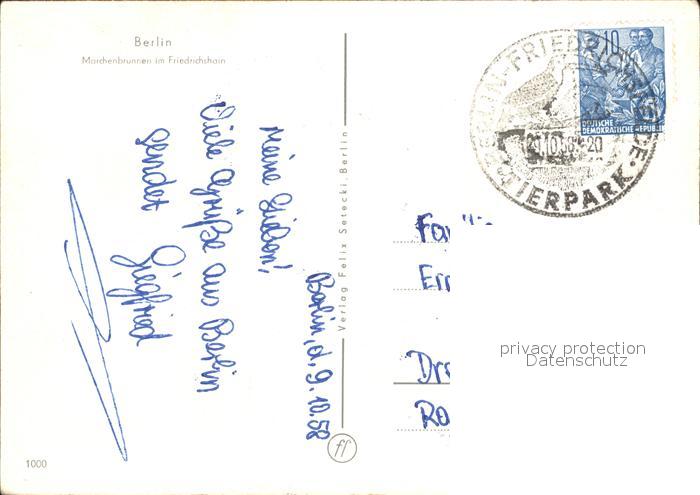 Berlin
Märchenbrunnen im Friedrichshain
Berlin, d. 9.10.58
Meine Lieben!
Viele Grüße aus Berlin
sendet
Siegfried
Verlag Felix Setecki, Berlin
ff
1000
10
DEUTSCHE
DEMOKRATISCHE REPUBLIK
BERLIN-FRIEDRICHSFELDE
20
TIERPARK
Fa
Err
Dr
Ro
privacy protection
Datenschutz